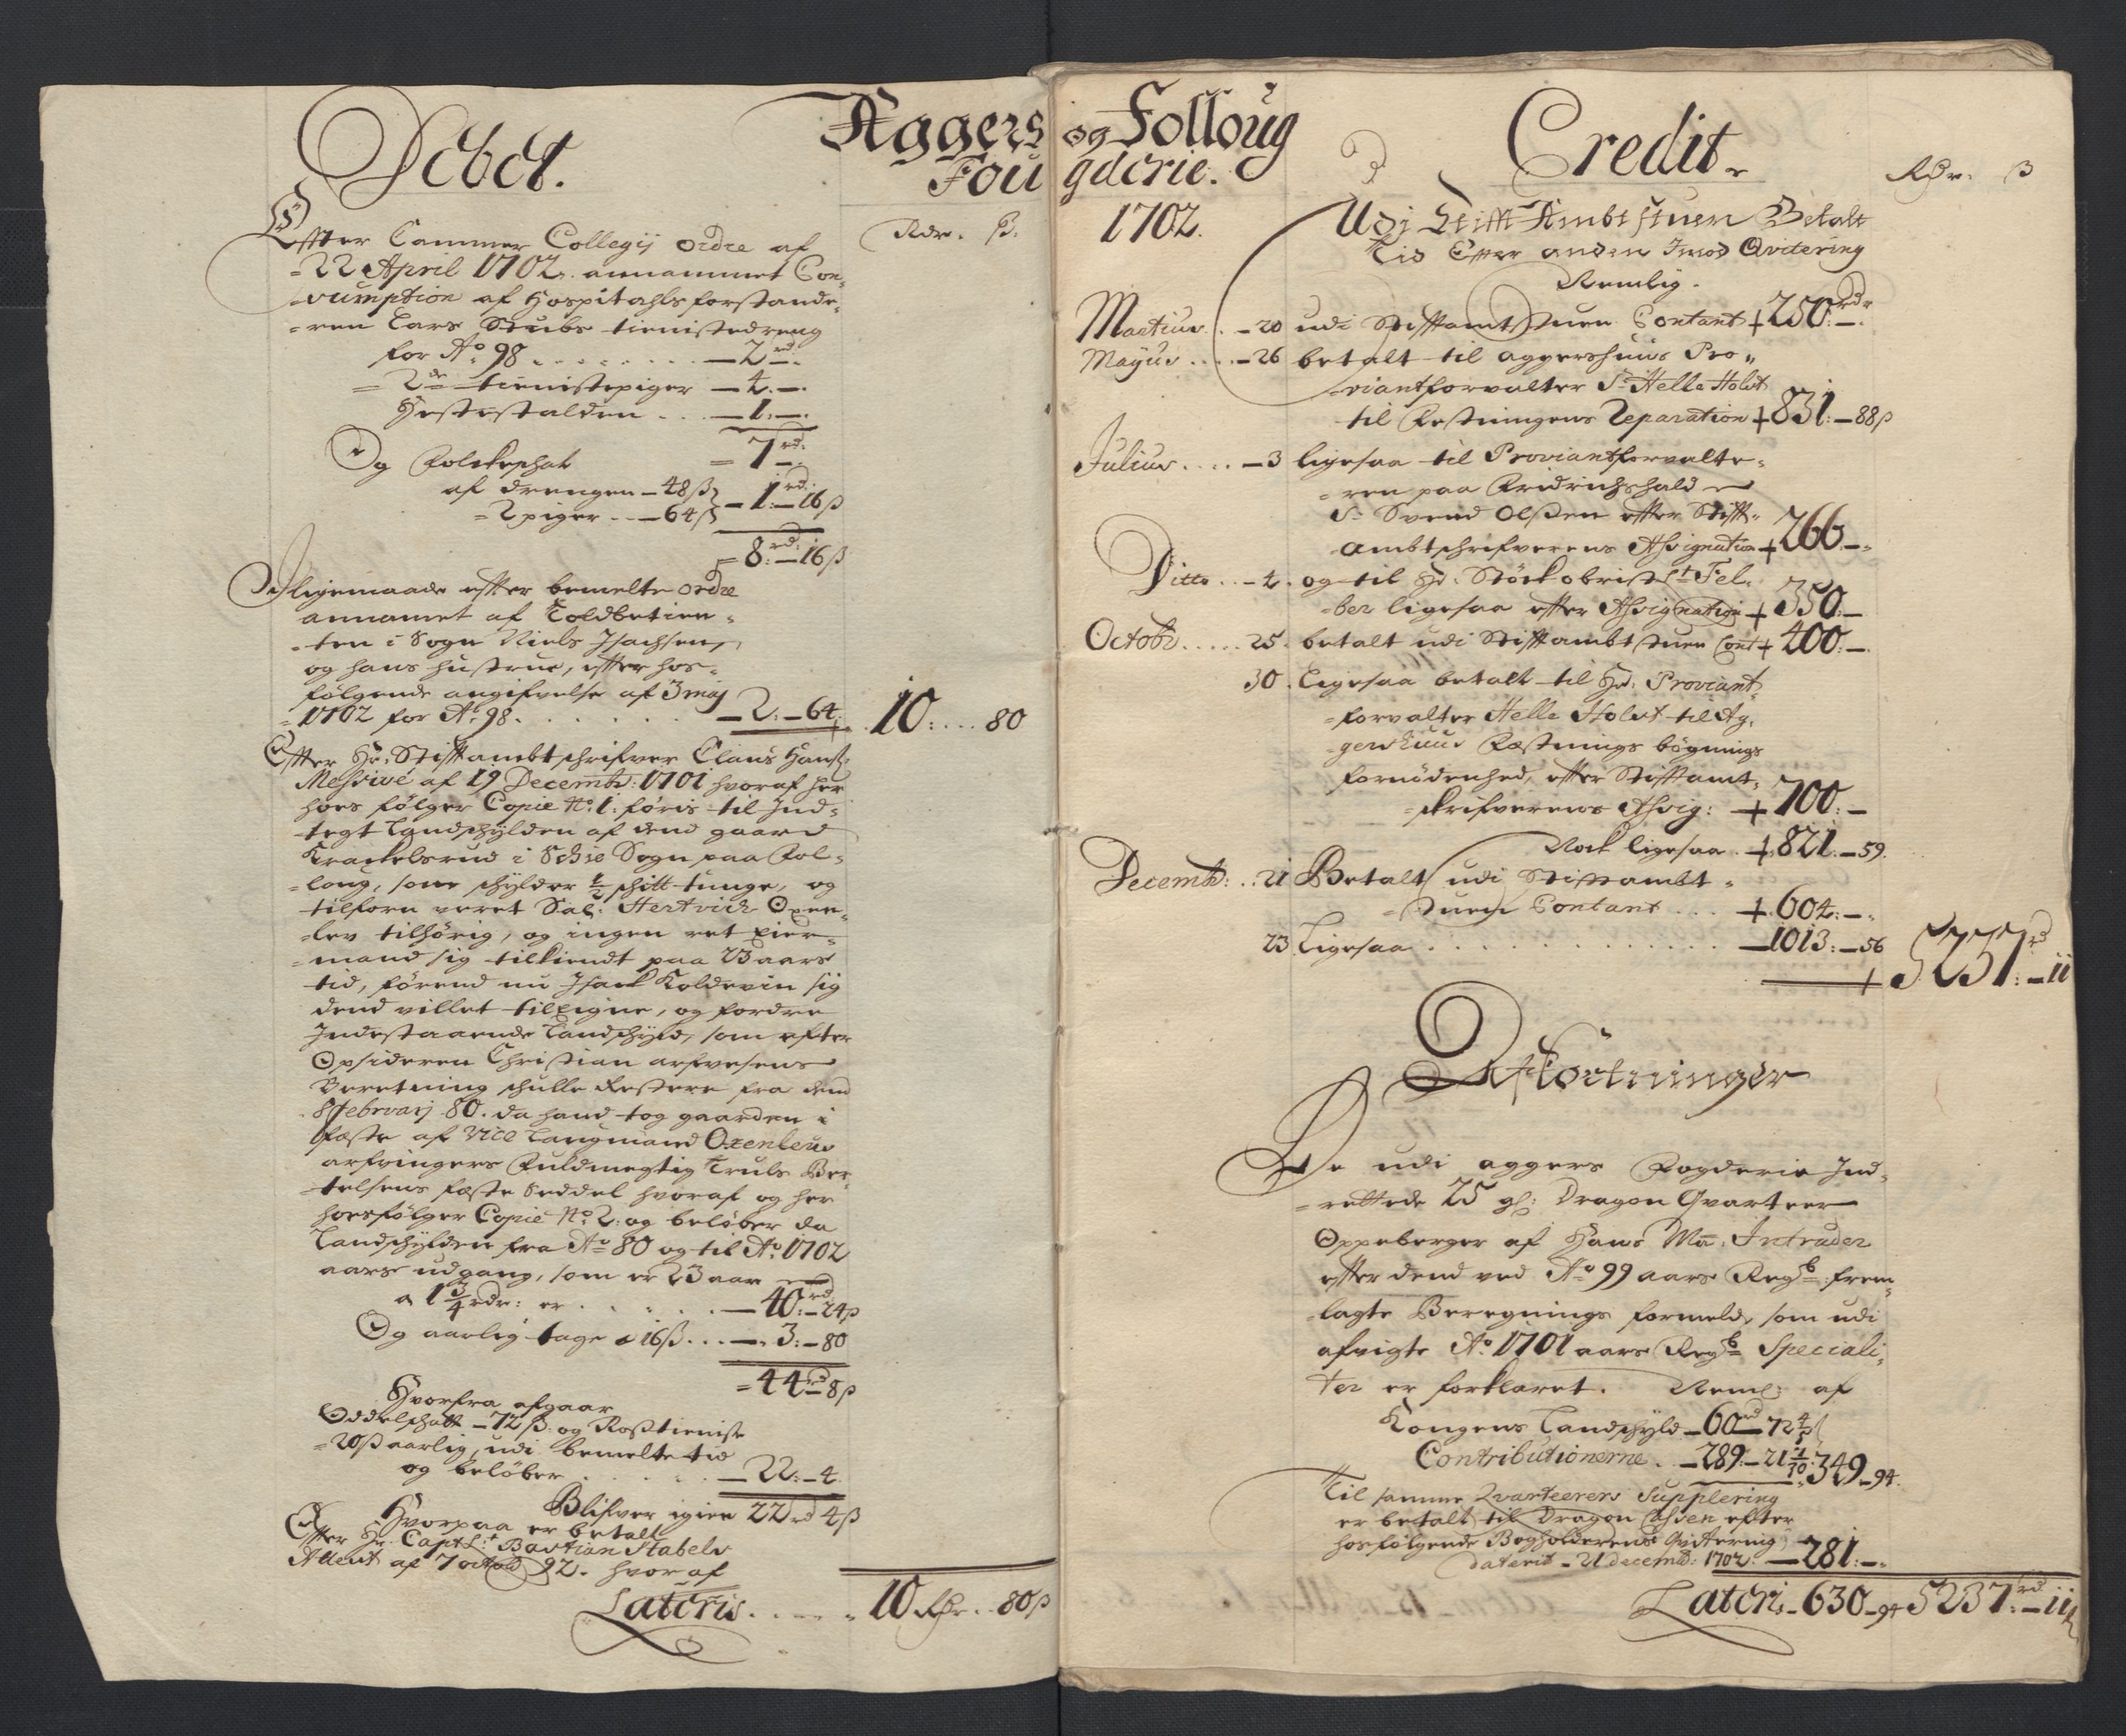 Debet.
Aggers og Folloug
Fougderie.
1702.
Rdr. ß.
Effter Cammer Collegij ordre af
22 April 1702. annammet Con-
sumption af Hospitahls forstande-
ren Lars Stubs tienistedreng
for Ao 98 . . . . . . 2 rd –
2de tienistepiger – 4. –.
Hestestalden . . . – 1. –.
7 rd: –
Og Folckeschat
af drengen – 48 ß
2 piger . . – 64 ß – 1 rd: – 16 ß
8 rd: – 16 ß
Ligemaade effter bemelte ordre
annamet af Toldbetien-
ten i Sogn Niels Jsachsen,
og hans hustrue, effter hos-
følgende angifvelse af 3 maij
1702 for Ao. 98. . . . . . – 2: – 64. 10: . . . . 80
Effter Hr. Stifftambtschrifver Claus Hans:
Missive af 19 Decembr: 1701 hvoraf her
hoes følger Copie No. 1. føris til Ind-
tegt Landschylden af dend gaard
Krackelsrud i Schie Sogn paa Fol-
loug, som schylder ½ schltt tunge, og
tilforn veret Sal: Hertvich Oxen-
lev tilhørig, og ingen ret Eier-
mand sig tilkiendt paa 23 aars
tid, førend nu Jsack Koldevin sig
dend villet tilEigne, og fordre
Indestaaende Landschyld, som efter
Opsideren Christian arfvesens
Beretning schulle Restere fra dend
8 Februarj 80. da hand tog gaarden i
fæste af Vice Laugmand Oxenleus
arfvingers Fuldmegtig Truls Ber-
telsens fæste Seddel hvoraf og her
hoesfølger Copie No. 2. og beløber da
Landschylden fra Ao 80 og til Ao. 1702
aars udgang, som er 23 aar
a 1¾ rdr: er . . . . . – 40: rd – 24 ß
Og aarlig tage a 16 ß . . . – 3: – 80
44 rd – 8 ß
Hvorfra afgaar
Oddelschatt – 72 ß og Rostieniste
20 ß aarlig, udi bemelte tid
og beløber . . . . . – 22: – 4.
Blifver igien 22 rd 4 ß
Hvorpaa er betalt
Effter Hr. Capt Lt Bastian Stabels
Attest af 7 octobr 92. hvoraf
Lateris. . . . . . 10 Rdr. . 80 ß
Credit.
Rdr. ß
Udj Stifft Ambtstuen Betalt
Tid Effter anden Imod Qvitering
Nemlig.
Martius . . – 20 udi Stifftamtstuen Contant + 250: rdr –.
Mayus . . . . – 26 betalt til aggershuus Pro-
viantforvalter Sr. Helle Holst
til Festningens Reparation + 831: – 88 ß
Julius . . . . – 3 ligesaa til Proviantforvalte-
ren paa Fridrichshald
Sr. Svend Olssen effter Stifft-
ambtschrifverens Assignation + 266. –.
Ditto . . . – 4. og til Hr. Stöckobrist Lt. Fel-
ber ligesaa effter Assignation + 350: –
Octobr. . . . . . 25. betalt udi Stifftambtstuen Cont + 400: –.
30. Ligesaa betalt til Hr. Proviant-
forvalter Helle Holst til Ag-
gershuus Fæstnings bögnings
fornödenhed, effter Stifftamt-
skrifverens Assig: + 700: –
Nock ligesaa . + 821. – 59.
Decembr: . . 21 Betalt udi Stifftambt-
stuen Contant . . . + 604: –.
23. Ligesaa . . . . . . . . . . . . – 1013: – 56
+ 5237: rd – 11
Afkortninger
De udi aggers Fogderie Ind-
rettede 25 gl: Dragon Qvarteer
Oppeberger af Hans Ma. Intrader
effter dend ved Ao 99 aars Regsk: frem-
lagte Beregnings formeld, som udi
afvigte Ao. 1701 aars Regsk Speciali-
ter er forklaret. Neml: af
Kongens Landschyld – 60 rd – 72 4/5 ß
Contributionerne . . – 289: – 21 1/10 349 – 94.
Til samme Qvarteerers Supplering
er betalt til Dragon Cassen efter
hosfølgende Bogholderens Qvittering
daterit – 21 decembr: 1702. – 281: –.
Lateris – 630 – 94 5237: rd – 11 ß